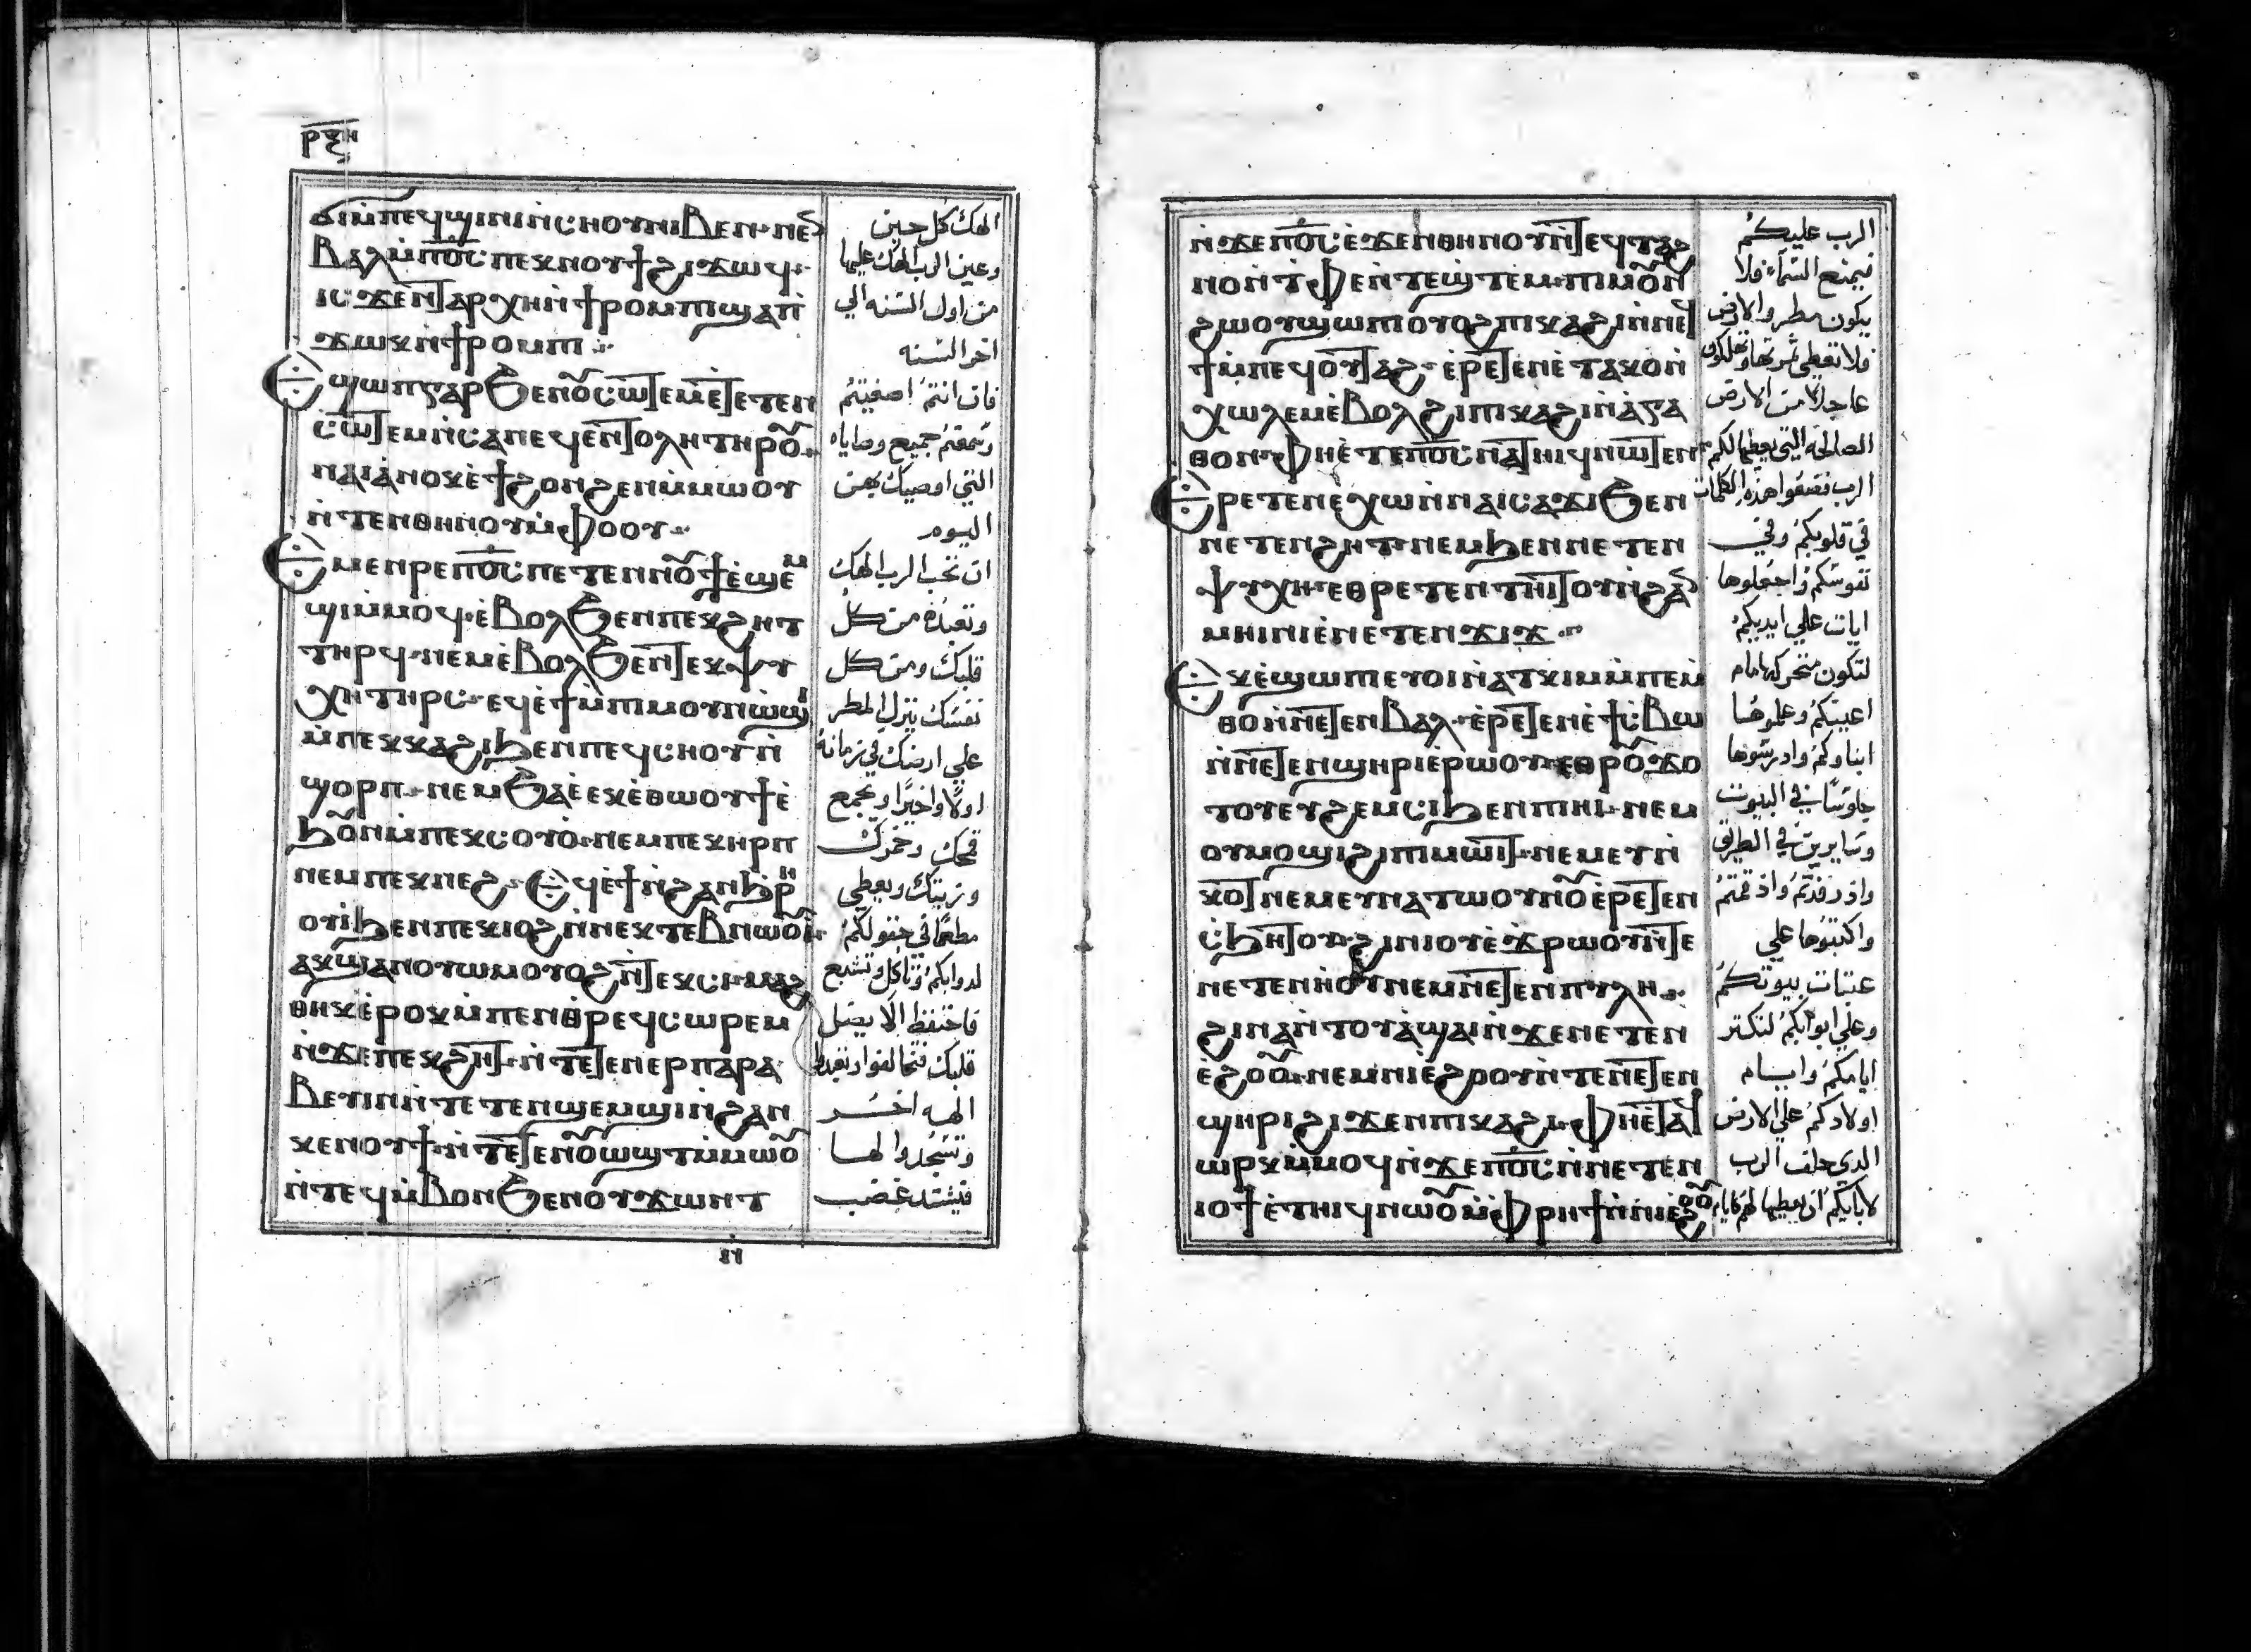 ⲣⲝⲏ
ϭⲓⲙ̀ⲡⲉϥϣⲓⲛⲓⲛ̀ⲥⲏⲟⲩⲛⲓⲃⲉⲛ·ⲛⲉⲛ
ⲃⲁⲗⲙ̀ⲡⲟ̅ⲥ̅ⲡⲉⲕⲛⲟⲩϯϩⲓϫⲱϥ·
ⲓⲥϫⲉⲛⲧⲁⲣⲭⲏⲛ̀ϯⲣⲟⲙⲡⲓϣⲁⲡ̀
ϫⲱⲕⲛ̀ϯⲣⲟⲙⲡⲓ
ⲉϣⲱⲡⲅⲁⲣϧⲉⲛⲟⲩⲥⲱⲧⲉⲙⲉ̀ⲧⲉⲧⲉⲛ
ⲥⲱⲧⲉⲙⲛ̀ⲥⲁⲛⲉϥⲉⲛⲧⲟⲗⲏⲧⲏⲣⲟⲩ
ⲛⲁⲓⲁ̀ⲛⲟⲕⲉ̀ϯϩⲟⲛϩⲉⲛⲙ̀ⲙⲱⲟⲩ
ⲛ̀ⲧⲉⲛⲑⲏⲛⲟⲩⲙ̀ⲫⲟⲟⲩ
ⲉ̀ⲙⲉⲛⲣⲉⲡⲟ̅ⲥ̅ⲡⲉⲧⲉⲛⲛⲟⲩϯⲉ̀ϣⲉⲙ
ϣⲓⲙ̀ⲙⲟϥ·ⲉ̀ⲃⲟⲗϧⲉⲛⲡⲉⲕϩⲏⲧ
ⲧⲏⲣϥ·ⲛⲉⲙⲉ̀ⲃⲟⲗϧⲉⲛⲧⲉⲕⲯⲩ
ⲭⲏⲧⲏⲣⲥ·ⲉϥⲉ̀ϯⲙ̀ⲡⲓⲙⲟⲩⲛϩⲱⲟⲩ
ⲙ̀ⲡⲉⲕⲕⲁϩⲓϧⲉⲛⲡⲉϥⲥⲏⲟⲩⲛ̀
ϣⲟⲣⲡ·ⲛⲉⲙϧⲁⲉ̀ⲉⲕⲉ̀ⲑⲱⲟⲩϯⲉ̀
ϧⲟⲩⲛⲙ̀ⲡⲉⲕⲥⲟⲩⲟ̀·ⲛⲉⲙⲡⲉⲕⲏⲣⲡ
ⲛⲉⲙⲡⲉⲕⲛⲉϩ·ⲉϥⲉ̀ϯⲛ̀ϩⲁⲛϧⲣⲏ
ⲟⲩⲓ̀ϧⲉⲛⲡⲉⲕⲓⲟϩⲓⲛ̀ⲛⲉⲕⲧⲉⲃⲛⲱⲟⲩⲓ̀·
ⲁⲕϣⲁⲛⲟⲩⲱⲙⲟⲩⲟϩⲛ̀ⲧⲉⲕⲥⲓ·ⲙⲁϩ
ⲑⲏⲕⲉ̀ⲣⲟⲕⲙ̀ⲡⲉⲛⲑⲣⲉϥⲥⲱⲣⲉⲙ
ⲛ̀ϫⲉⲡⲉⲕϩⲏⲧ·ⲛ̀ⲧⲉⲧⲉⲛⲉⲣⲡⲁⲣⲁ
ⲃⲉⲩⲓⲛⲛ̀ⲧⲉⲧⲉⲛϣⲉⲙϣⲓⲛ̀ϩⲁⲛ
ⲕⲉⲛⲟⲩϯ·ⲛ̀ⲧⲉⲧⲉⲛⲟⲩⲱϣⲧⲙ̀ⲙⲱⲟⲩ
ⲛ̀ⲧⲉϥⲙ̀ⲃⲟⲛϧⲉⲛⲟⲩϫⲱⲛⲧ
الهك كل حين
وعين الرب الهك عليها
من اول السنه الي
اخر السنه
فان انتم اصغيتم
وسمعتم جميع وصاياه
التي اوصيك بهن
اليوم
ان تحب الرب الهك
وتعبده من كل
قلبك ومن كل
نفسك ينزل المطر
علي ارضك في زمانه
اولًا واخيرًا وتجمع
قمحك وخمرك
وزيتك ويعطي
مطعمًا في حقولكم
لدوابكم وتاكل وتشبع
فاحتفظ الا يضل
قلبك فتخالفوا وتعبدوا
الهه اخر
وتسجدوا لها
فيشتد غضب
ⲛ̀ϫⲉⲡⲟ̅ⲥ̅ⲉ̀ϫⲉⲛⲑⲏⲛⲟⲩⲛ̀ⲧⲉϥⲧⲁϩ
ⲛⲟⲛ̀ⲧ̀ⲫⲉⲛ̀ⲧⲉϣⲧⲉⲙ·ⲡⲓⲙⲟⲩⲛ
ϩⲱⲟⲩϣⲱⲡⲓⲟⲩⲟϩⲡⲓⲕⲁϩⲓⲛ̀ⲛⲉϥ
ϯⲙ̀ⲡⲉϥⲟⲩⲧⲁϩ·ⲉ̀ⲣⲉⲧⲉⲛⲉ̀ⲧⲁⲕⲟⲛ̀
ⲭⲱⲗⲉⲙⲉ̀ⲃⲟⲗϩⲓⲡⲓⲕⲁϩⲓⲛ̀ⲁ̀ⲅⲁ
ⲑⲟⲛ·ⲫⲏⲉ̀ⲧⲉⲡⲟ̅ⲥ̅ⲛⲁⲧⲏⲓϥⲛⲱⲧⲉⲛ
ⲉⲣⲉⲧⲉⲛⲉⲭⲱⲛ̀ⲛⲁⲓⲥⲁϫⲓϧⲉⲛ
ⲛⲉⲧⲉⲛϩⲏⲧ·ⲛⲉⲙϧⲉⲛⲛⲉⲧⲉⲛ
ⲯⲩⲭⲏ·ⲉⲑⲣⲉⲧⲉⲛⲧⲏⲓⲧⲟⲩⲛ̀ϩⲁⲛ
ⲙⲏⲓⲛⲓⲉ̀ⲛⲉⲧⲉⲛϫⲓϫ
ⲉⲕⲉ̀ϣⲱⲡⲓⲉⲩⲟⲓⲛ̀ⲁⲧⲕⲓⲙⲙ̀ⲡⲉⲙ̀
ⲑⲟⲛ̀ⲛⲉⲧⲉⲛⲃⲁⲗ·ⲉ̀ⲣⲉⲧⲉⲛⲉ̀ϯⲥ̀ⲃⲱ
ⲛ̀ⲛⲉⲧⲉⲛϣⲏⲣⲓⲉⲣⲱⲟⲩ·ⲉⲑⲣⲟⲩϫⲟ
ⲧⲟⲩⲉⲩϩⲉⲙⲥⲓϧⲉⲛⲡⲓⲏⲓ·ⲛⲉⲙ
ⲟⲩⲙⲟϣⲓϩⲓⲡⲓⲙⲱⲓⲧ·ⲛⲉⲙⲉⲩⲛ̀
ⲕⲟⲧⲛⲉⲙⲉⲩⲛⲁⲧⲱⲟⲩⲛⲟⲩⲉ̀ⲣⲉⲧⲉⲛ
ⲥ̀ϧⲏⲧⲟⲩ·ϩⲓⲛⲓⲟⲩⲉ̀ϫⲣⲱⲟⲩⲛ̀ⲧⲉ
ⲛⲉⲧⲉⲛⲏⲟⲩⲛⲉⲙⲛⲉⲧⲉⲛⲡⲩⲗⲏ
ϩⲓⲛⲁⲛ̀ⲧⲟⲩⲁ̀ϣⲁⲓⲛ̀ϫⲉⲛⲉⲧⲉⲛ
ⲉ̀ϩⲟⲟⲩ·ⲛⲉⲙⲛⲓⲉ̀ϩⲟⲟⲩⲛ̀ⲧⲉⲛⲉⲧⲉⲛ
ϣⲏⲣⲓϩⲓϫⲉⲛⲡⲓⲕⲁϩⲓ·ⲫⲏⲉ̀ⲧⲁϥ
ⲱⲣⲕⲙ̀ⲙⲟϥⲛ̀ϫⲉⲡⲟ̅ⲥ̅ⲛ̀ⲛⲉⲧⲉⲛ
ⲓⲟϯⲉ̀ⲧⲏⲓϥⲛⲱⲟⲩⲙ̀ⲫⲣⲏϯⲛ̀ⲛⲓⲉ̀ϩⲟⲟⲩ
الرب عليكم
فيمنع السمآء فلا
يكون مطر والارض
فلا تعطي ثمرتها وتهلكون
عاجلًا من الارض
الصالحه التي يعطيها لكم
الرب فضعوا هذه الكلمات
في قلوبكم وفي
نفوسكم واجعلوها
ايات علي ايديكم
لتكون متحركه امام
اعينكم وعلموها
ابناوكم وادرسوها
جلوسًا في البيوت
وسايرين في الطريق
واذ رقدتم واذ قمتم
واكتبوها علي
عتبات بيوتكم
وعلي ابوابكم لتكتر
ايامكم وايام
اولادكم علي الارض
الذي حلف الرب
لابايكم ان يعطيها لهم كايام